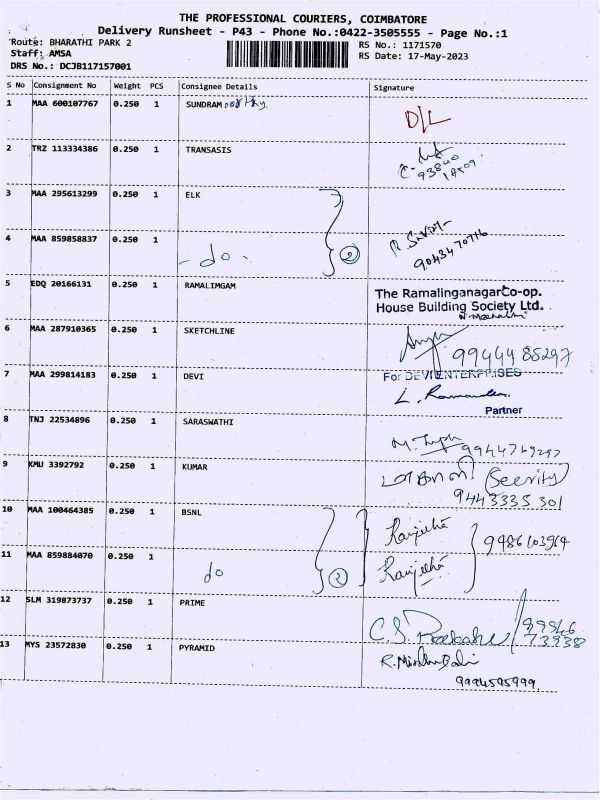 THE PROFESSIONAL COURIERS, COIMBATORE
Delivery Runsheet - P43 - Phone No.:0422-3505555 - Page No.:1
Route: BHARATHI PARK 2
Staff: AMSA
DRS No.: DCJB117157001
RS No.: 1171570
RS Date: 17-May-2023
S No Consignment No Weight PCS Consignee Details Signature
1 MAA 600107767 0.250 1 SUNDRAM D/L
2 TRZ 113334386 0.250 1 TRANSASIS
3 MAA 295613299 0.250 1 ELK
4 MAA 859858837 0.250 1 - do - 2
5 EDQ 20166131 0.250 1 RAMALIMGAM The Ramalinganagar Co-op.
House Building Society Ltd.
6 MAA 287910365 0.250 1 SKETCHLINE 99444 85297
7 MAA 299814183 0.250 1 DEVI For DEVI ENTERPRISES
Partner
8 TNJ 22534896 0.250 1 SARASWATHI
9 KMU 3392792 0.250 1 KUMAR
9443335 301
10 MAA 100464385 0.250 1 BSNL Ranjitha
11 MAA 859884070 0.250 1 do 2 Ranjitha
12 SLM 319873737 0.250 1 PRIME 99946
73938
13 MYS 23572830 0.250 1 PYRAMID
9994595999